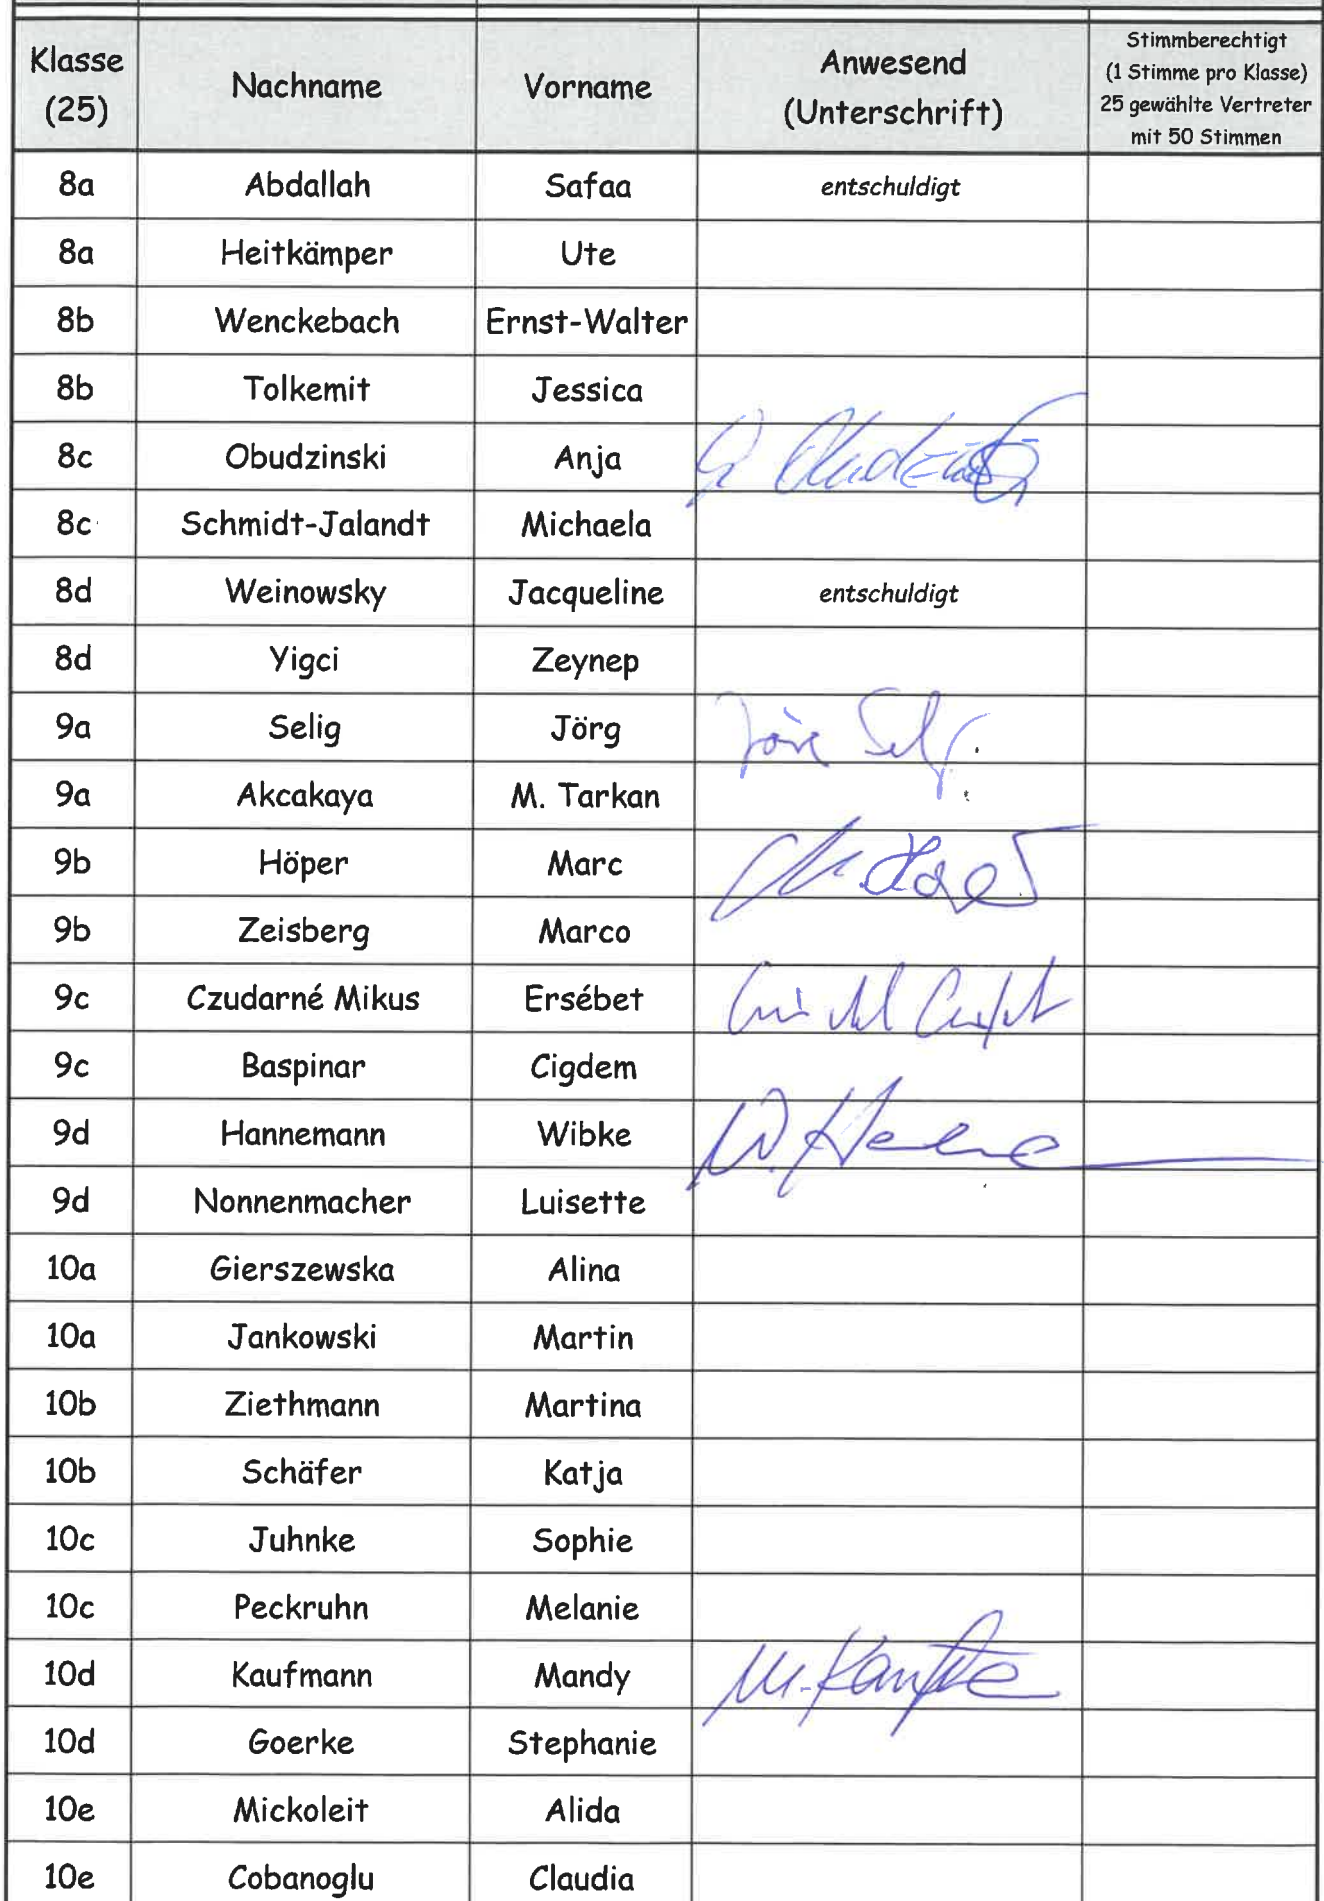 Klasse (25) Nachname Vorname Anwesend (Unterschrift) Stimmberechtigt (1 Stimme pro Klasse) 25 gewählte Vertreter mit 50 Stimmen
8a Abdallah Safaa entschuldigt
8a Heitkämper Ute
8b Wenckebach Ernst-Walter
8b Tolkemit Jessica
8c Obudzinski Anja
8c Schmidt-Jalandt Michaela
8d Weinowsky Jacqueline entschuldigt
8d Yigci Zeynep
9a Selig Jörg
9a Akcakaya M. Tarkan
9b Höper Marc
9b Zeisberg Marco
9c Czudarné Mikus Ersébet
9c Baspinar Cigdem
9d Hannemann Wibke
9d Nonnenmacher Luisette
10a Gierszewska Alina
10a Jankowski Martin
10b Ziethmann Martina
10b Schäfer Katja
10c Juhnke Sophie
10c Peckruhn Melanie
10d Kaufmann Mandy
10d Goerke Stephanie
10e Mickoleit Alida
10e Cobanoglu Claudia